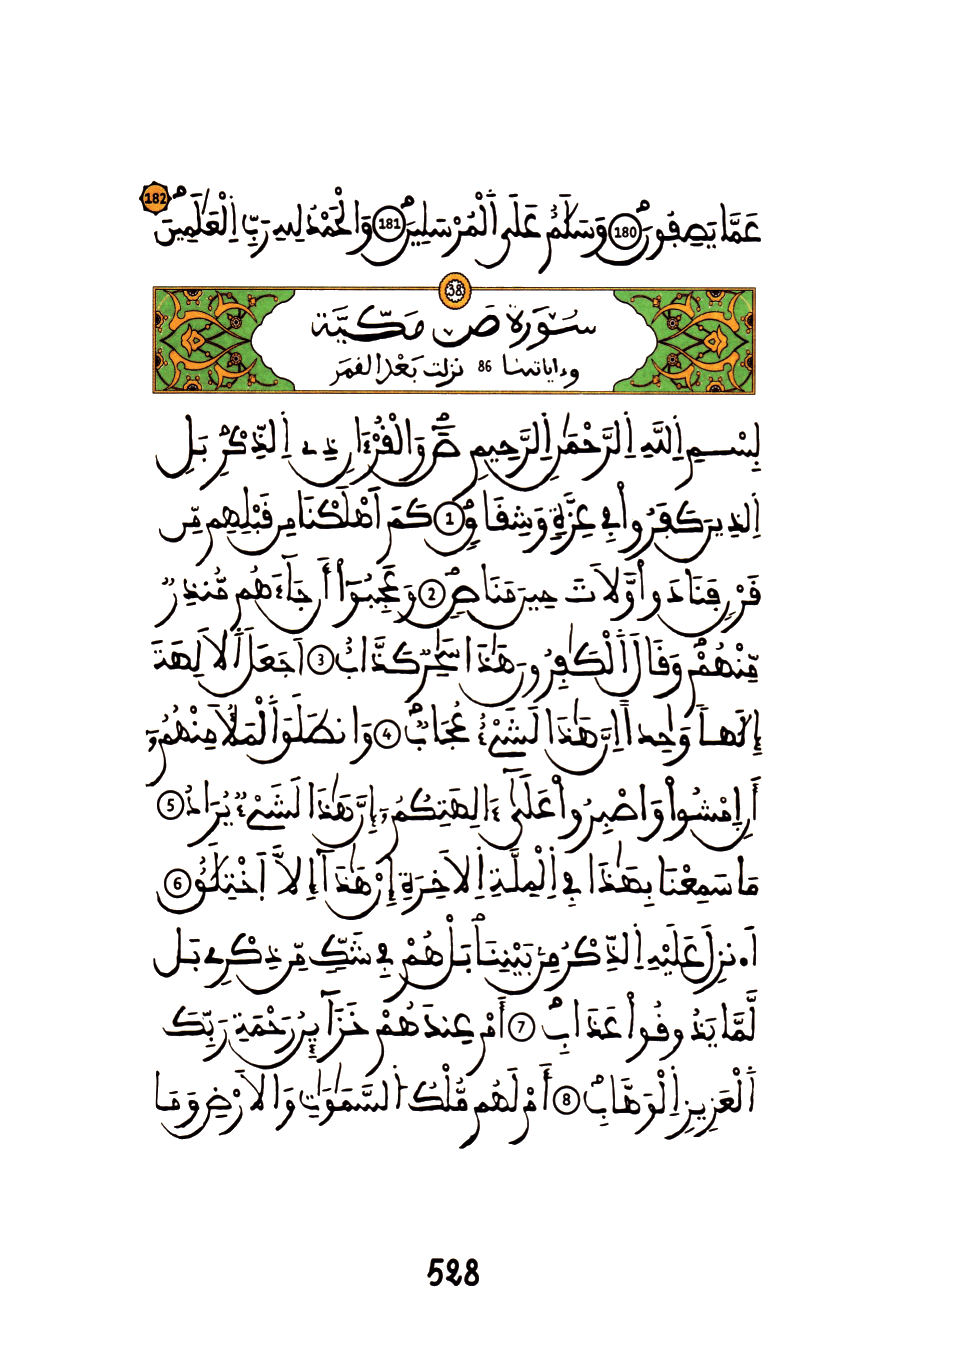 عَمَّا يَصِفُونَ 180 وَسَلَٰمٌ عَلَى اَ۬لْمُرْسَلِينَ 181 وَالْحَمْدُ لِلهِ رَبِّ اِ۬لْعَٰلَمِينَ 182
38
سُورَة ص مَكِّيَّة
وءاياتها 86 نزلت بَعْدَ القمَر
بِسْمِ اِ۬للَّهِ اِ۬لرَّحْمَٰنِ اِ۬لرَّحِيمِ صَٓ وَالْقُرْءَانِ ذِے اِ۬لذِّكْرِ بَلِ
اِ۬لذِينَ كَفَرُواْ فِے عِزَّةٍ وَشِقَاقٍ 1 كَمَ اَهْلَكْنَا مِن قَبْلِهِم مِّن
قَرْنٍ فَنَادَواْ وَّلَاتَ حِينَ مَنَاصٍ 2 وَعَجِبُوٓاْ أَن جَآءَهُم مُّنذِرٌ
مِّنْهُمْ وَقَالَ اَ۬لْكَٰفِرُونَ هَٰذَا سَٰحِرٌ كَذَّابٌ 3 اَجَعَلَ اَ۬لَالِهَةَ
إِلَٰهاً وَٰحِداً اِنَّ هَٰذَا لَشَےْءٌ عُجَابٌ 4 وَانطَلَقَ اَ۬لْمَلَأُ مِنْهُمُۥٓ
أَنِ اِ۪مْشُواْ وَاصْبِرُواْ عَلَىٰٓ ءَالِهَتِكُمُۥٓ إِنَّ هَٰذَا لَشَےْءٌ يُرَادُ 5
مَا سَمِعْنَا بِهَٰذَا فِے اِ۬لْمِلَّةِ اِ۬لَاخِرَةِ إِنْ هَٰذَآ إِلَّا اَ۪خْتِلَٰقٌ 6
اَ۟نزِلَ عَلَيْهِ اِ۬لذِّكْرُ مِنۢ بَيْنِنَا بَلْ هُمْ فِے شَكٍّ مِّن ذِكْرِے بَل
لَّمَّا يَذُوقُواْ عَذَابِ 7 أَمْ عِندَهُمْ خَزَآئِنُ رَحْمَةِ رَبِّكَ
اَ۬لْعَزِيزِ اِ۬لْوَهَّابِ 8 أَمْ لَهُم مُّلْكُ اُ۬لسَّمَٰوَٰتِ وَالَارْضِ وَمَا
528